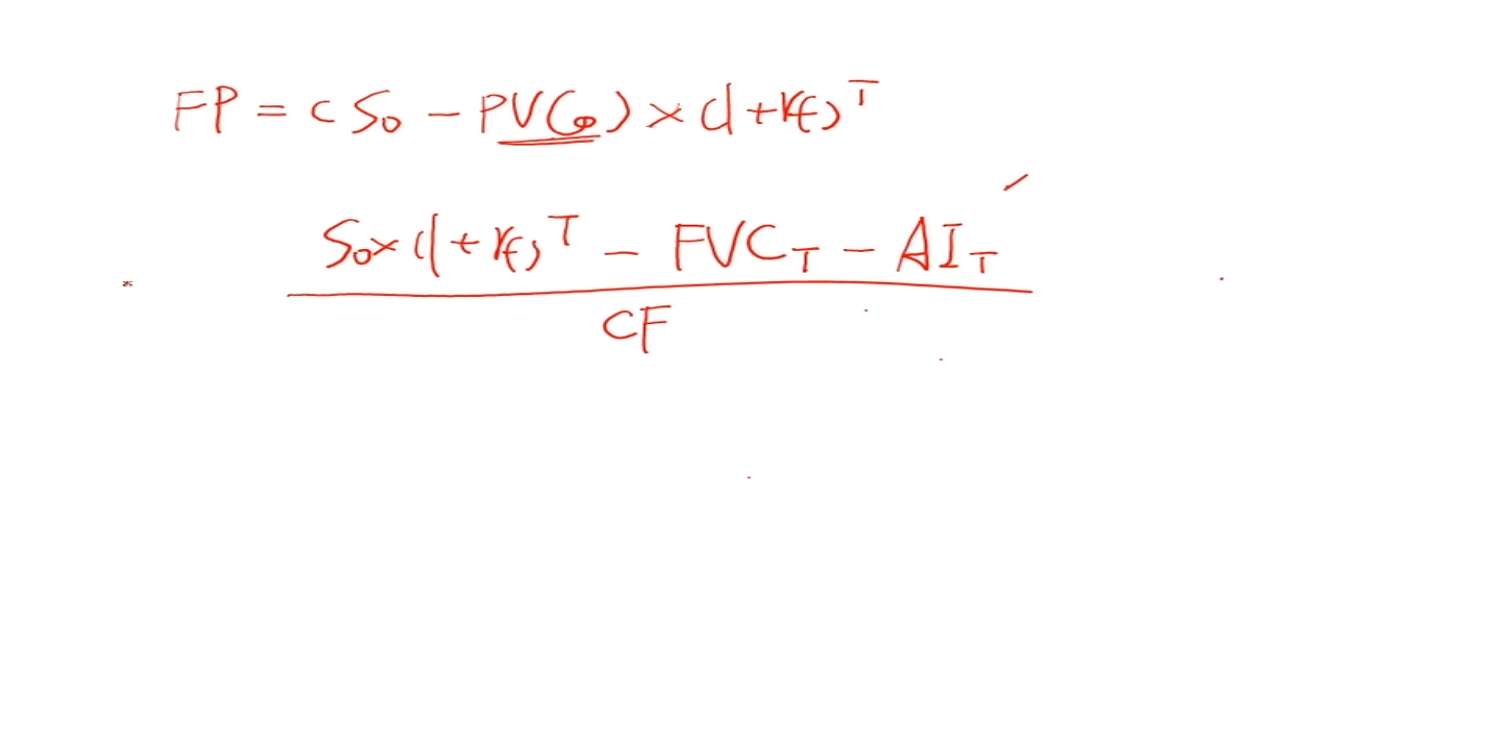 FP = (S₀ - PVC₀) × (1+rf)ᵀ
S₀×(1+rf)ᵀ - FVC_T - AI_T
CF